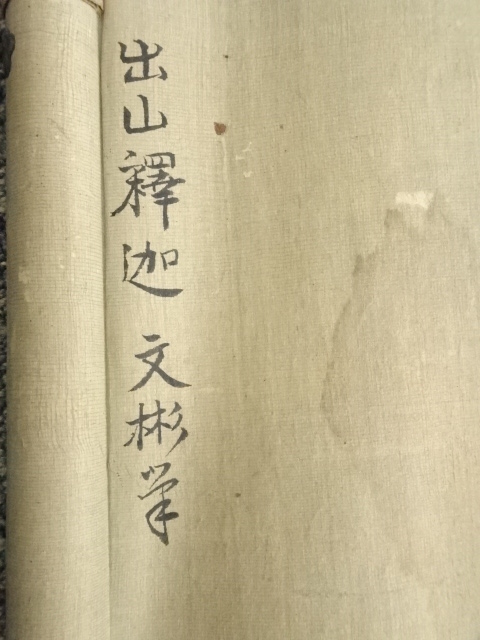 出山釋迦 文彬筆